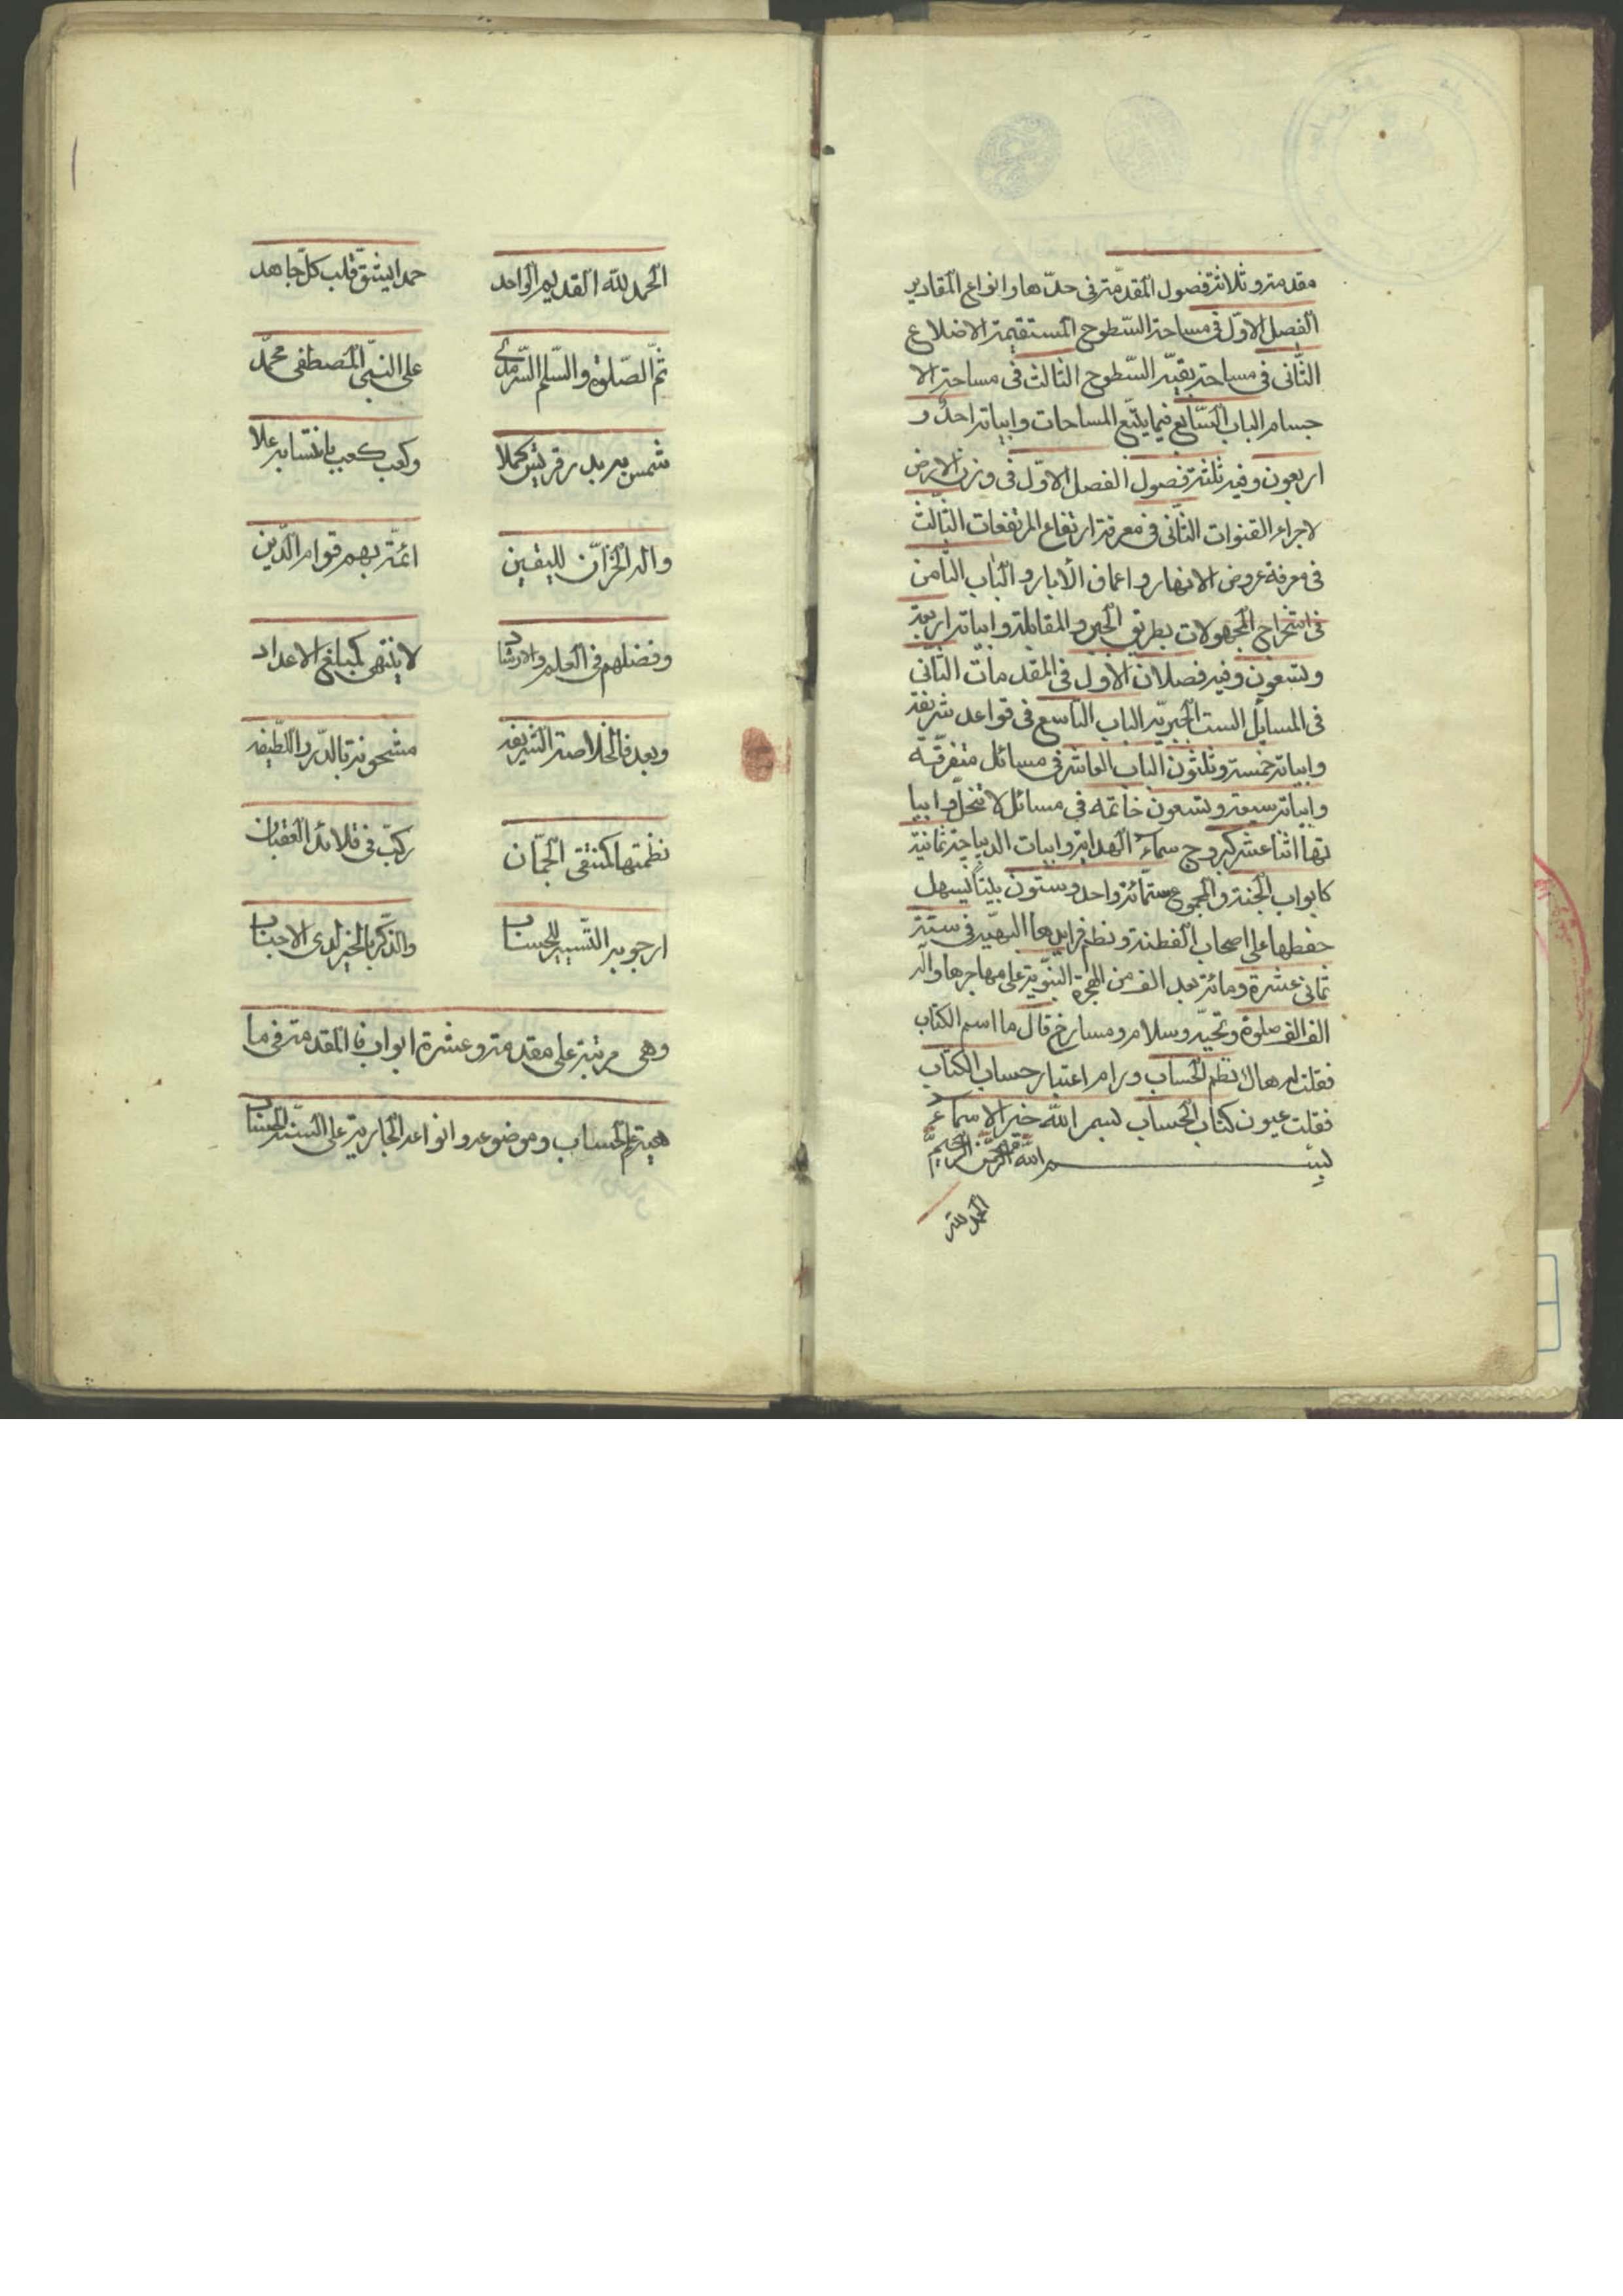 مقدمة وثلاثة فصول المقدّمة فى حدّها وانواع المقادير
الفصل الاوّل فى مساحة السّطوح المستقيمة الاضلاع
الثّانى فى مساحة بقيّة السّطوح الثالث فى مساحة الا
جسام الباب السّابع فيما يتبع المساحات وابياته احد و
اربعون وفيه ثلثة فصول الفصل الاوّل فى وزن الارض
لاجراء القنوات الثّانى فى معرفة ارتفاع المرتفعات الثّالث
فى معرفة عروض الانهار واعماق الأبار والباب الثامن
فى استخراج المجهولات بطريق الجبر والمقابلة وابياته اربعة
وتسعون وفيه فصلان الاول فى المقدمات الثّانى
فى المسايل الست الجبريّة الباب التاسع فى قواعد شريفة
وابياته خمسة وثلثون الباب العاشر فى مسائل متفرّقة
وابياته سبعة وتسعون خاتمه فى مسائل لا تنحل وابيا
تها اثنا عشر كبروج سماء الهداية وابيات الديباجة ثمانية
كابواب الجنة والمجموع ستمائة واحد وستون بيتاً ليسهل
حفظها على اصحاب الفطنة ونظم فرايدها البهيّة فى سنة
ثمانى عشرة ومائة بعد الف من الهجرة النبّوية على مهاجرها واله
الف الف صلوة وتحيّة وسلام ومسارخ قال ما اسم الكتاب
فقلت له هاك نظم الحساب ورام اعتبار حساب الكتاب
فقلت عيون كتاب الحساب بسم الله خير الاسماء
بسم الله الرحمن الرحيم
الحمد لله
الحمد لله القديم الواحد حمدا يشق قلب كلّ جاهد
ثمّ الصّلوة والسّلم السّرمدى على النبّى المصطفى محمّد
شمس به بدر قريش كملا وكعب كعب بانتسابه علا
واله الخزّان لليقين ائمّة بهم قوام الدّين
وفضلهم فى العلم والارشاد لا ينتهى كمبلغ الاعداد
وبعد فالخلاصة الشريفه مشحونة بالدّر واللّطيفه
نظمتها كمنتقى الجمّان ركبّ فى قلائد العقيان
ارجو به التّيسير للحساب والذّكر بالخير لدى الاحباب
وهى مرتبة على مقدمة وعشرة ابواب فا المقدمة فى ما
هية علم الحساب وموضوعه وانواعه الجارية على السنة الحساب